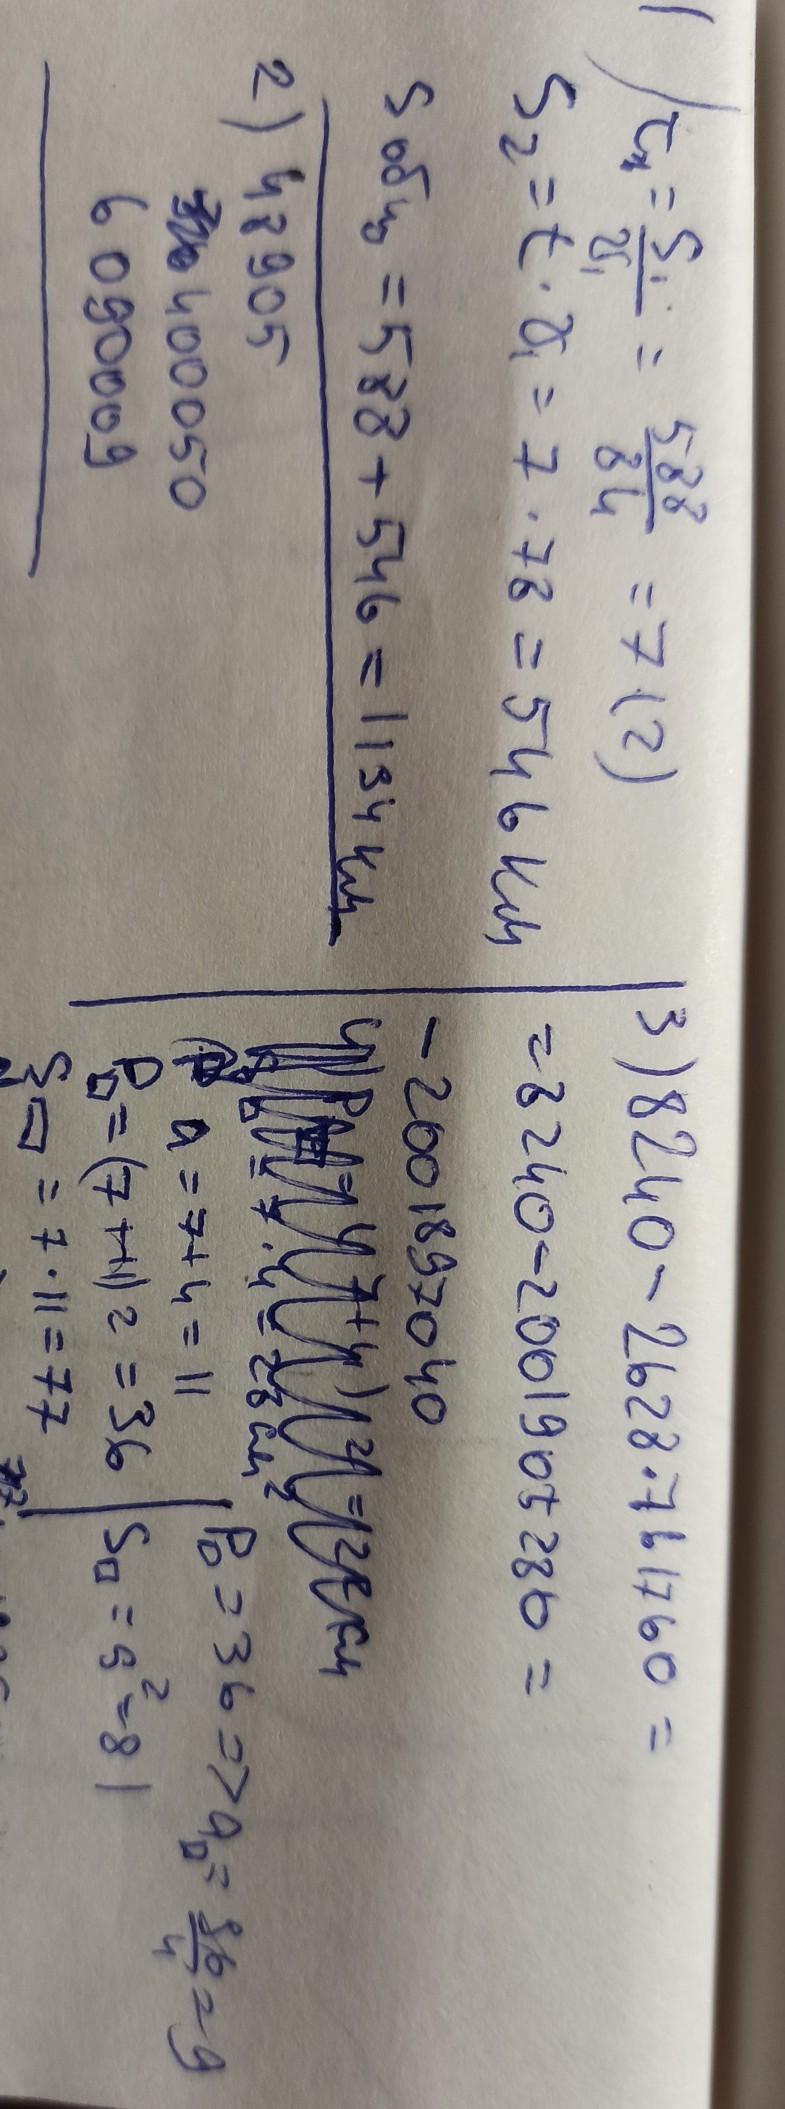 1) t₁ = S₁/v₁ = 588/84 = 7 (2)
S₂ = t · v₁ = 7 · 78 = 546 км
S общ = 588 + 546 = 1134 км
2) 48905
400050
6090009
3) 8240 - 2628 · 761760 =
= 8240 - 2001905280 =
- 2001897040
4)
a = 7 + 4 = 11
P▭ = (7+11) 2 = 36
S▭ = 7 · 11 = 77
P□ = 36 => a□ = 36/4 = 9
S□ = 9² = 81